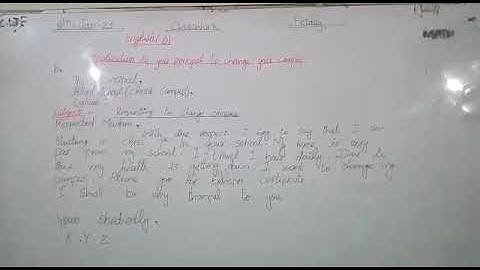 Classwork
Friday
English (B)
Application to you principal to change your campus
To
The Principal,
School (Girls Campus),
Lahore.
Subject: Requesting to change campus
Respected Madam,
With due respect I beg to say that I am
studing in class in your school. My home is very
far from my school. I travel 1 hour daily. Due to
this my health is getting down. I want to change my
campus. Please give me the transfer certificate.
I shall be very thankful to you.
Yours Obediently,
X.Y.Z
MATH